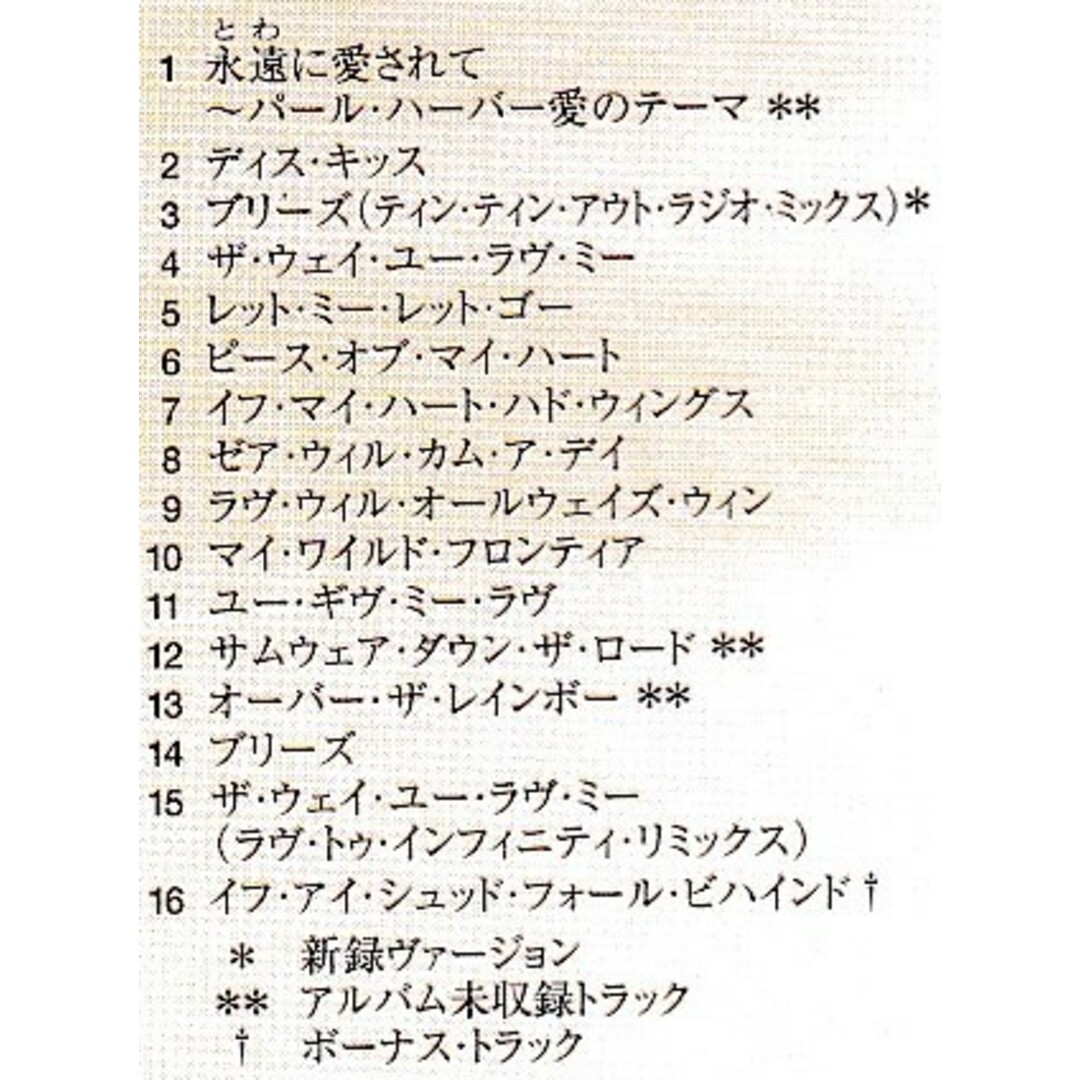 とわ
1 永遠に愛されて
～パール・ハーバー愛のテーマ **
2 ディス・キッス
3 ブリーズ(ティン・ティン・アウト・ラジオ・ミックス)*
4 ザ・ウェイ・ユー・ラヴ・ミー
5 レット・ミー・レット・ゴー
6 ピース・オブ・マイ・ハート
7 イフ・マイ・ハート・ハド・ウィングス
8 ゼア・ウィル・カム・ア・デイ
9 ラヴ・ウィル・オールウェイズ・ウィン
10 マイ・ワイルド・フロンティア
11 ユー・ギヴ・ミー・ラヴ
12 サムウェア・ダウン・ザ・ロード **
13 オーバー・ザ・レインボー **
14 ブリーズ
15 ザ・ウェイ・ユー・ラヴ・ミー
(ラヴ・トゥ・インフィニティ・リミックス)
16 イフ・アイ・シュッド・フォール・ビハインド †
* 新録ヴァージョン
** アルバム未収録トラック
† ボーナス・トラック